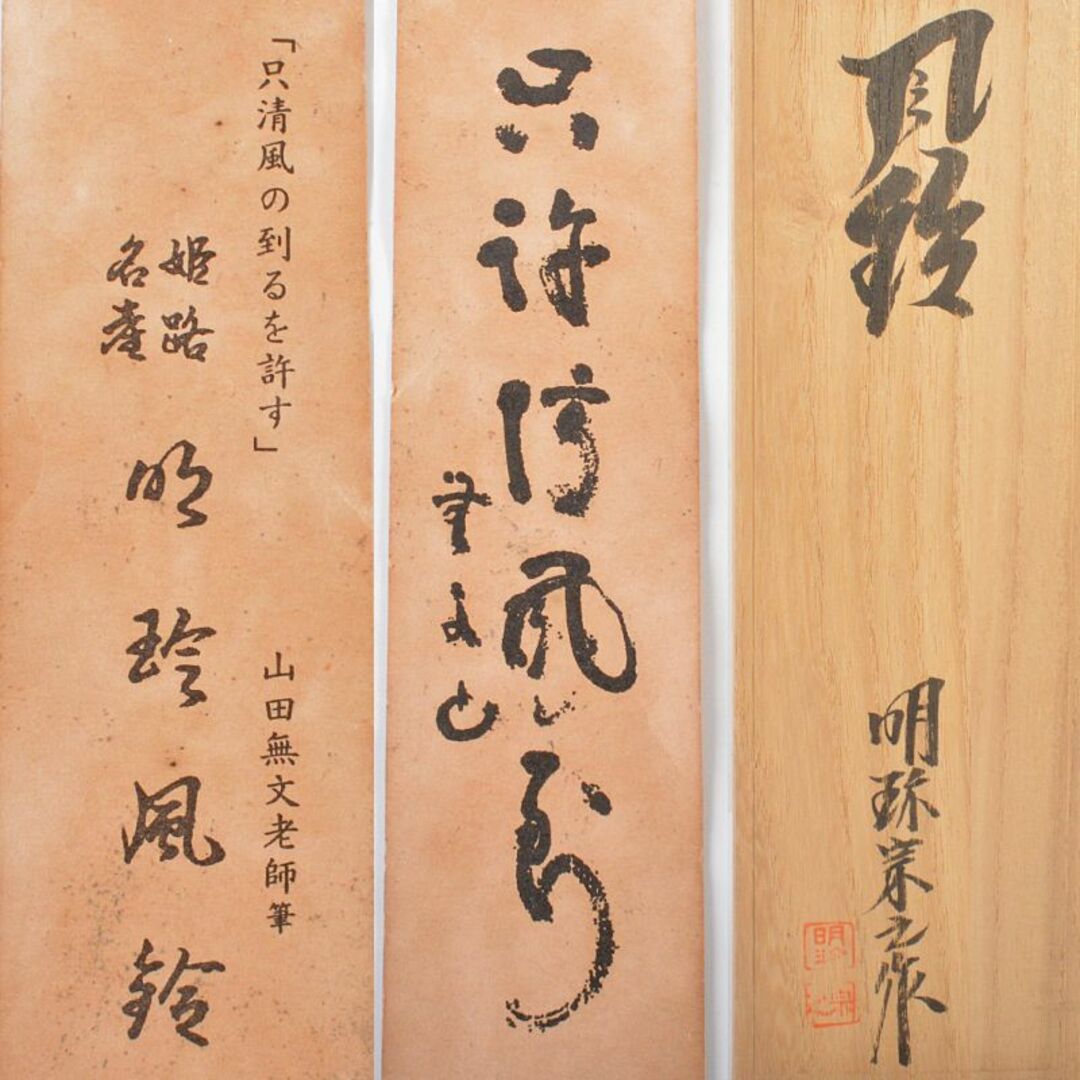 「只清風の到るを許す」
山田無文老師筆
姫路
名産
明珍風鈴
只許清風到
無文
風鈴
明珎宗之作